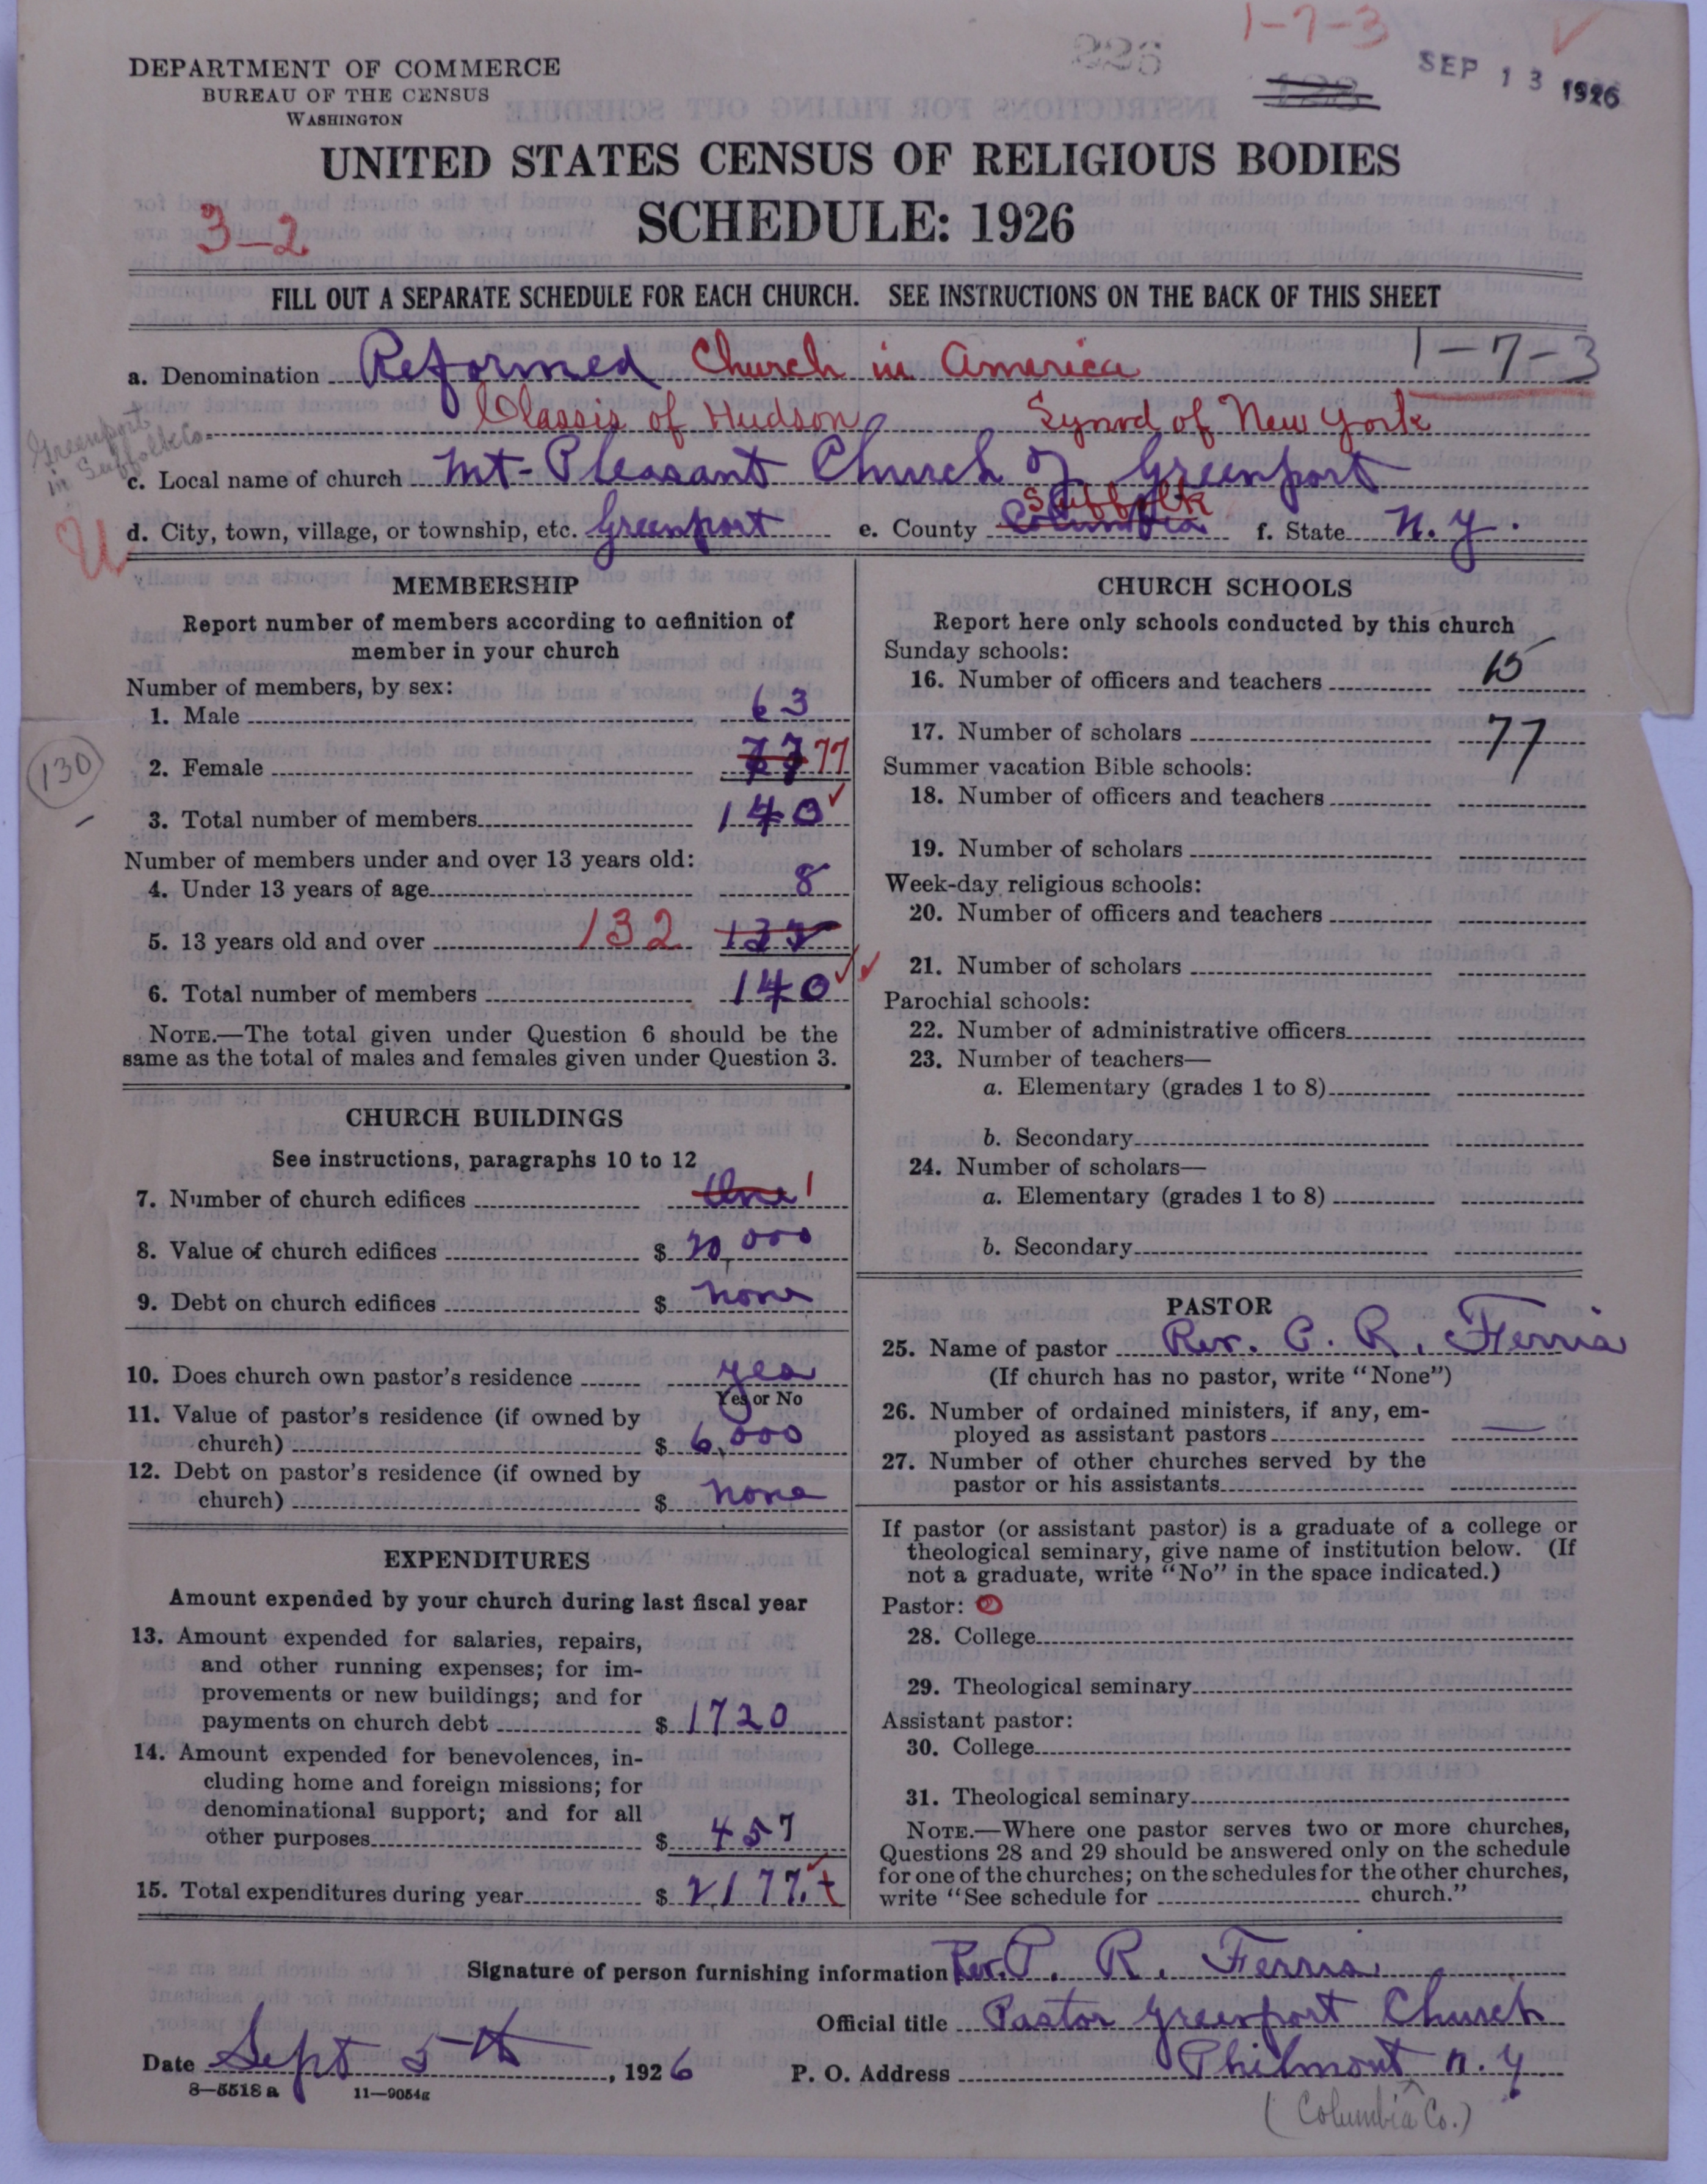 1-7-3
226
SEP 13 1926
DEPARTMENT OF COMMERCE
BUREAU OF THE CENSUS
WASHINGTON
UNITED STATES CENSUS OF RELIGIOUS BODIES
3-2
SCHEDULE: 1926
FILL OUT A SEPARATE SCHEDULE FOR EACH CHURCH. SEE INSTRUCTIONS ON THE BACK OF THIS SHEET
a. Denomination Reformed Church in America 1-7-3
Classis of Hudson Synod of New York
Greenport
in Suffolk Co.
c. Local name of church Mt-Pleasant Church of Greenport
d. City, town, village, or township, etc. Greenport e. County Columbia Suffolk f. State N.Y.
MEMBERSHIP
Report number of members according to definition of
member in your church
Number of members, by sex:
1. Male 63
2. Female 77 77
130
3. Total number of members 140
Number of members under and over 13 years old:
4. Under 13 years of age 8
5. 13 years old and over 132 132
6. Total number of members 140
NOTE.—The total given under Question 6 should be the
same as the total of males and females given under Question 3.
CHURCH BUILDINGS
See instructions, paragraphs 10 to 12
7. Number of church edifices One 1
8. Value of church edifices $ 20,000
9. Debt on church edifices $ none
10. Does church own pastor's residence yes
Yes or No
11. Value of pastor's residence (if owned by
church) $ 6,000
12. Debt on pastor's residence (if owned by
church) $ none
EXPENDITURES
Amount expended by your church during last fiscal year
13. Amount expended for salaries, repairs,
and other running expenses; for im-
provements or new buildings; and for
payments on church debt $ 1720
14. Amount expended for benevolences, in-
cluding home and foreign missions; for
denominational support; and for all
other purposes $ 457
15. Total expenditures during year $ 2,177.
CHURCH SCHOOLS
Report here only schools conducted by this church
Sunday schools:
16. Number of officers and teachers 15
17. Number of scholars 77
Summer vacation Bible schools:
18. Number of officers and teachers
19. Number of scholars
Week-day religious schools:
20. Number of officers and teachers
21. Number of scholars
Parochial schools:
22. Number of administrative officers
23. Number of teachers—
a. Elementary (grades 1 to 8)
b. Secondary
24. Number of scholars—
a. Elementary (grades 1 to 8)
b. Secondary
PASTOR
25. Name of pastor Rev. P. R. Ferris
(If church has no pastor, write "None")
26. Number of ordained ministers, if any, em-
ployed as assistant pastors —
27. Number of other churches served by the
pastor or his assistants
If pastor (or assistant pastor) is a graduate of a college or
theological seminary, give name of institution below. (If
not a graduate, write "No" in the space indicated.)
Pastor:
28. College
29. Theological seminary
Assistant pastor:
30. College
31. Theological seminary
NOTE.—Where one pastor serves two or more churches,
Questions 28 and 29 should be answered only on the schedule
for one of the churches; on the schedules for the other churches,
write "See schedule for church."
Signature of person furnishing information Rev. P. R. Ferris
Official title Pastor Greenport Church
Date Sept 5th, 1926 P. O. Address Philmont N.Y
8—5518a 11—9054g
(Columbia Co.)